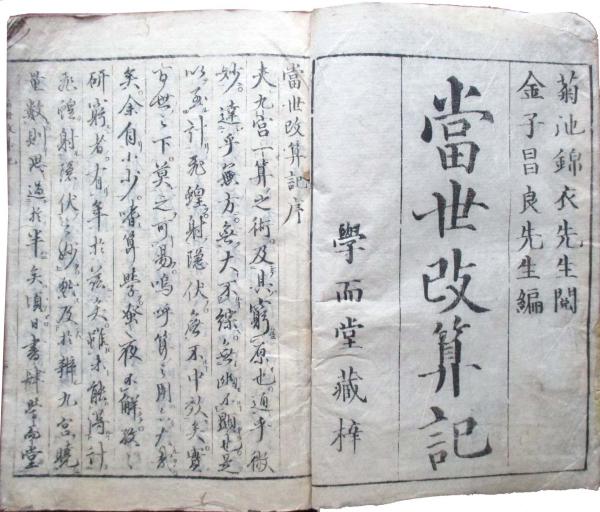 菊池錦衣先生閱
金子昌良先生編
當世改算記
學而堂藏梓
當世改算記序
夫九宮一算之術及其窮原也通乎微
妙達乎無方無大不綜無幽不顯於是
以至計飛蝗射隱伏無不中放矣實
百世之下莫之可易嗚呼算之用大
矣余自小少嗜算學發夜不解孜
研窮者有年於茲矣雖未能得計
飛蝗射隱伏之妙然及於辨九宮曉
量數則思過於半矣頃日書肆學而堂